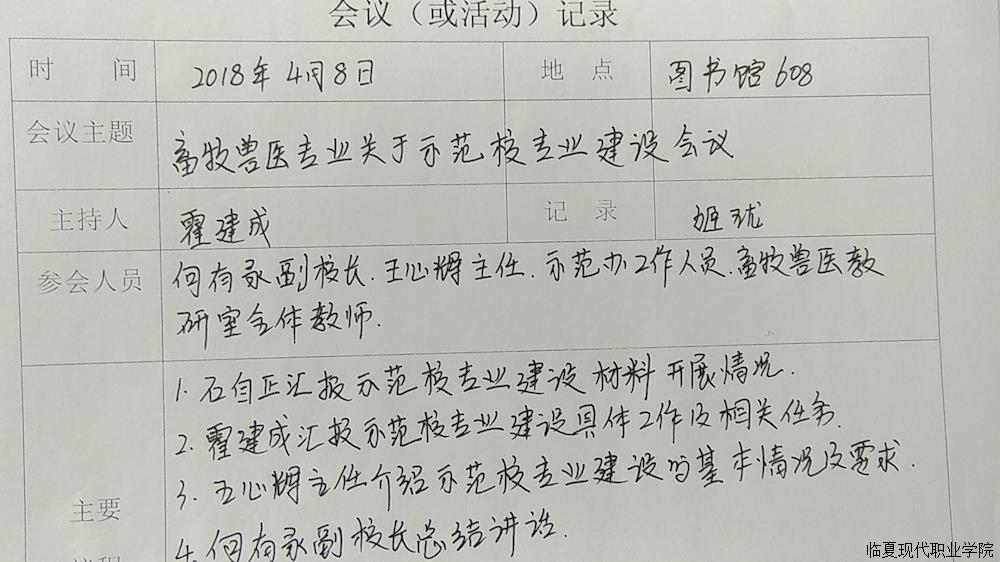 会议（或活动）记录
时 间 2018年4月8日 地 点 图书馆608
会议主题 畜牧兽医专业关于示范校专业建设会议
主持人 霍建成 记 录 姬珑
参会人员 何有录副校长.王心辉主任.示范办工作人员.畜牧兽医教
研室全体教师.
1.石自正汇报示范校专业建设材料开展情况.
2.霍建成汇报示范校专业建设具体工作及相关任务.
3.王心辉主任介绍示范校专业建设的基本情况及要求.
主要
4.何有录副校长总结讲话.
议程
临夏现代职业学院